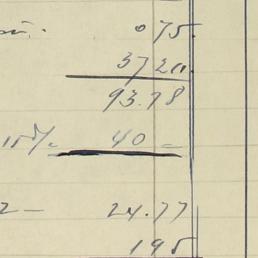 075
3720
93.78
15% 40 -
2 - 24.77
195